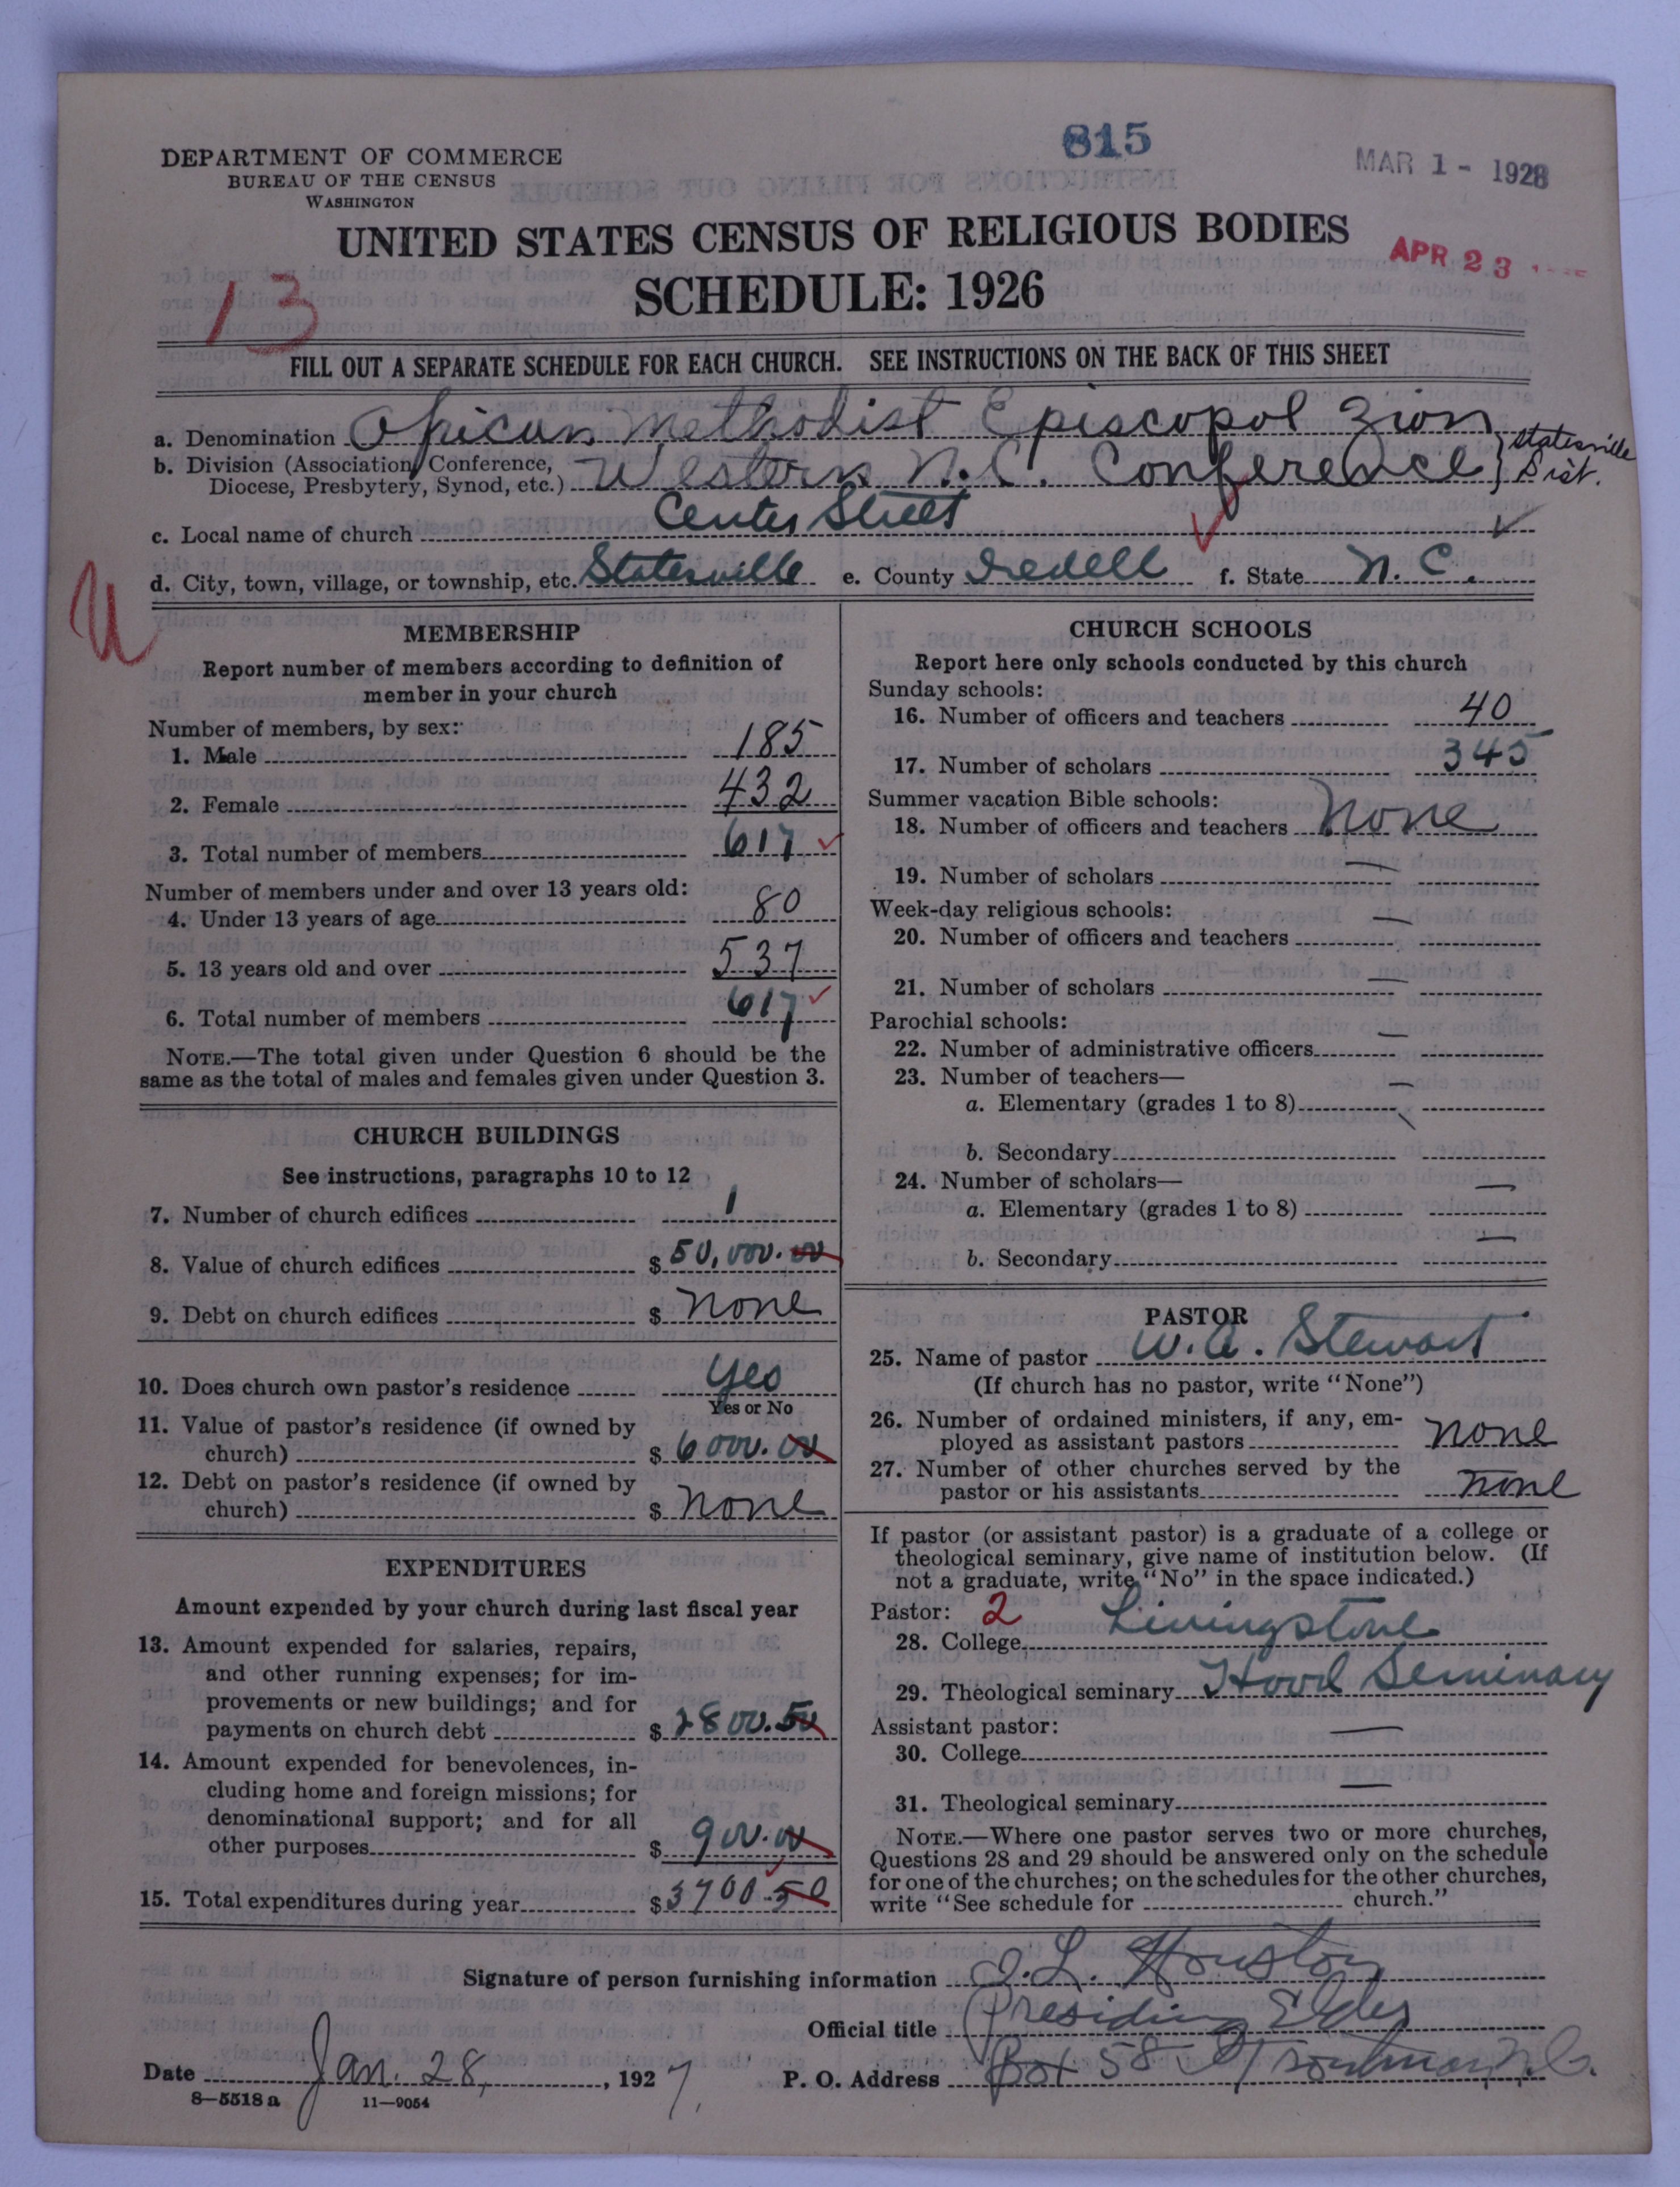 815
MAR 1 - 1928
DEPARTMENT OF COMMERCE
BUREAU OF THE CENSUS
WASHINGTON
UNITED STATES CENSUS OF RELIGIOUS BODIES
APR 23
SCHEDULE: 1926
13
FILL OUT A SEPARATE SCHEDULE FOR EACH CHURCH. SEE INSTRUCTIONS ON THE BACK OF THIS SHEET
a. Denomination African Methodist Episcopol Zion
b. Division (Association, Conference, Diocese, Presbytery, Synod, etc.) Western N.C. Conference } Statesville Dist.
c. Local name of church Center Street
d. City, town, village, or township, etc. Statesville e. County Iredell f. State N. C.
U
MEMBERSHIP
Report number of members according to definition of
member in your church
Number of members, by sex:
1. Male 185
2. Female 432
3. Total number of members 617 ✓
Number of members under and over 13 years old:
4. Under 13 years of age 80
5. 13 years old and over 537
6. Total number of members 617 ✓
NOTE.—The total given under Question 6 should be the
same as the total of males and females given under Question 3.
CHURCH BUILDINGS
See instructions, paragraphs 10 to 12
7. Number of church edifices 1
8. Value of church edifices $ 50,000.00
9. Debt on church edifices $ None
10. Does church own pastor's residence Yes
Yes or No
11. Value of pastor's residence (if owned by
church) $ 6000.00
12. Debt on pastor's residence (if owned by
church) $ None
EXPENDITURES
Amount expended by your church during last fiscal year
13. Amount expended for salaries, repairs,
and other running expenses; for im-
provements or new buildings; and for
payments on church debt $ 2800.50
14. Amount expended for benevolences, in-
cluding home and foreign missions; for
denominational support; and for all
other purposes $ 900.00
15. Total expenditures during year $ 3700.50
CHURCH SCHOOLS
Report here only schools conducted by this church
Sunday schools:
16. Number of officers and teachers 40
17. Number of scholars 345
Summer vacation Bible schools:
18. Number of officers and teachers None
19. Number of scholars —
Week-day religious schools:
20. Number of officers and teachers —
21. Number of scholars —
Parochial schools:
22. Number of administrative officers —
23. Number of teachers—
a. Elementary (grades 1 to 8) —
b. Secondary
24. Number of scholars—
a. Elementary (grades 1 to 8) —
b. Secondary —
PASTOR
25. Name of pastor W. A. Stewart
(If church has no pastor, write "None")
26. Number of ordained ministers, if any, em-
ployed as assistant pastors None
27. Number of other churches served by the
pastor or his assistants None
If pastor (or assistant pastor) is a graduate of a college or
theological seminary, give name of institution below. (If
not a graduate, write "No" in the space indicated.)
Pastor: 2
28. College Livingstone
29. Theological seminary Hood Seminary
Assistant pastor:
30. College —
31. Theological seminary —
NOTE.—Where one pastor serves two or more churches,
Questions 28 and 29 should be answered only on the schedule
for one of the churches; on the schedules for the other churches,
write "See schedule for church."
Signature of person furnishing information J. L. Houston
Official title Presiding Elder
Date Jan. 28, 1927. P. O. Address Box 58 Troutman, N.C.
8—5518a 11—9054